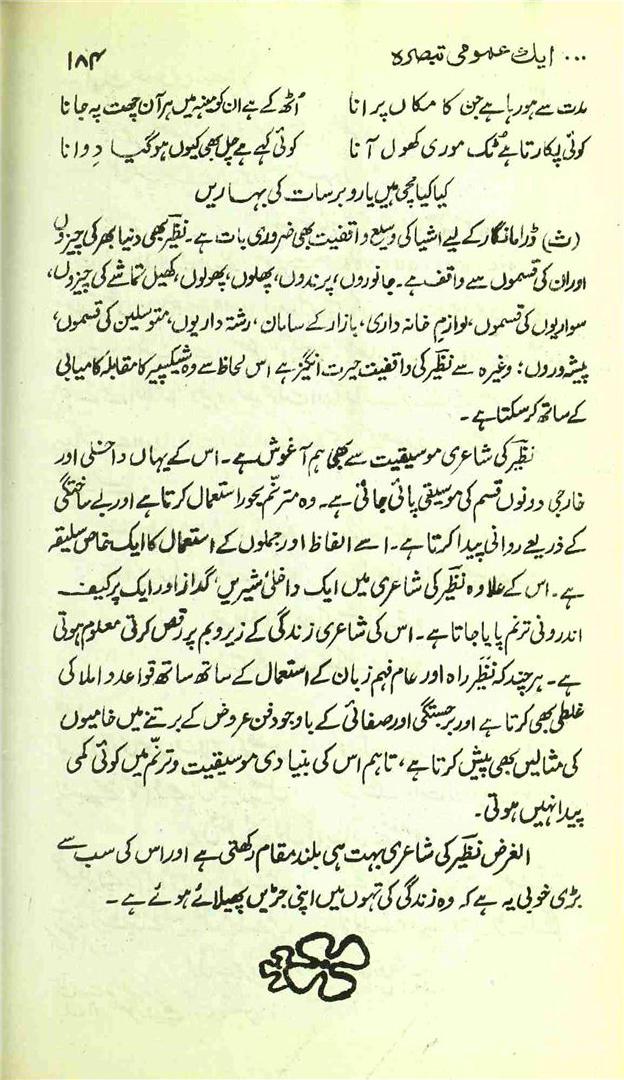 ... ایک عمومی تبصرہ ۱۸۴
مدت سے ہو رہا ہے جن کا مکاں پرانا اُٹھ کے ہے ان کو مینہ میں ہر آن چھت پہ جانا
کوئی پکارتا ہے ٹک موری کھول آنا کوئی کہے ہے چل بھی کیوں ہو گیا دِوانا
کیا کیا مچی ہیں یارو برسات کی بہاریں
(ث) ڈراما نگار کے لیے اشیا کی وسیع واقفیت بھی ضروری بات ہے۔ نظیرؔ بھی دنیا بھر کی چیزوں
اور ان کی قسموں سے واقف ہے۔ جانوروں، پرندوں، پھلوں، پھولوں، کھیل تماشے کی چیزوں،
سواریوں کی قسموں، لوازمِ خانہ داری، بازار کے سامان، رشتہ داریوں، متوسلین کی قسموں،
پیشہ وروں؛ وغیرہ سے نظیرؔ کی واقفیت حیرت انگیز ہے اس لحاظ سے وہ شیکسپیر کا مقابلہ کامیابی
کے ساتھ کر سکتا ہے۔
نظیرؔ کی شاعری موسیقیت سے بھی ہم آغوش ہے۔ اس کے یہاں داخلی اور
خارجی دونوں قسم کی موسیقی پائی جاتی ہے۔ وہ مترنّم بحور استعمال کرتا ہے اور بے ساختگی
کے ذریعے روانی پیدا کرتا ہے۔ اسے الفاظ اور جملوں کے استعمال کا ایک خاص سلیقہ
ہے۔ اس کے علاوہ نظیرؔ کی شاعری میں ایک داخلی شیریں گداز اور ایک پرکیف
اندرونی ترنم پایا جاتا ہے۔ اس کی شاعری زندگی کے زیر و بم پر رقص کرتی معلوم ہوتی
ہے۔ ہر چند کہ نظیرؔ راہ اور عام فہم زبان کے استعمال کے ساتھ ساتھ قواعد و املا کی
غلطی بھی کرتا ہے اور برجستگی اور صفائی کے باوجود فن عروض کے برتنے میں خامیوں
کی مثالیں بھی پیش کرتا ہے، تاہم اس کی بنیادی موسیقیت و ترنّم میں کوئی کمی
پیدا نہیں ہوتی۔
الغرض نظیرؔ کی شاعری بہت ہی بلند مقام رکھتی ہے اور اس کی سب سے
بڑی خوبی یہ ہے کہ وہ زندگی کی تہوں میں اپنی جڑیں پھیلائے ہوئے ہے۔